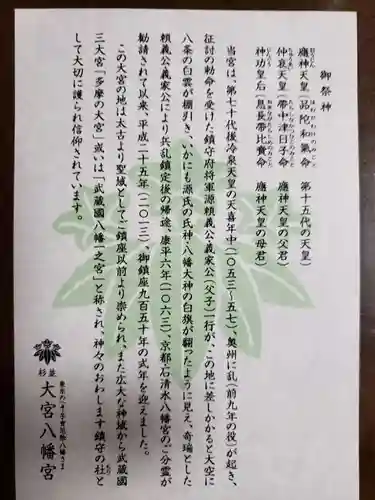 御祭神
應神天皇(品陀和氣命 第十五代の天皇)
仲哀天皇(帶中津日子命 應神天皇の父君)
神功皇后(息長帶比賣命 應神天皇の母君)
当宮は、第七十代後冷泉天皇の天喜年中(一〇五三~五七)、奥州に乱(前九年の役)が起き、
征討の勅命を受けた鎮守府将軍源頼義公義家公(父子)一行が、この地に差しかかると大空に
八条の白雲が棚引き、いかにも源氏の氏神・八幡大神の白旗が翻ったように見え、奇瑞とした
頼義公義家公により兵乱鎮定後の帰途、康平六年(一〇六三)、京都・石清水八幡宮のご分霊が
勧請されて以来、平成二十五年(二〇一三)、御鎮座九百五十年の式年を迎えました。
この大宮の地は太古より聖域としてご鎮座以前より崇められ、また広大な神域から武蔵國
三大宮「多摩の大宮」或いは「武蔵國八幡一之宮」と称され、神々のおわします鎮守の社と
して大切に護られ信仰されています。
東京のへそ 子育厄除八幡さま
杉並 大宮八幡宮